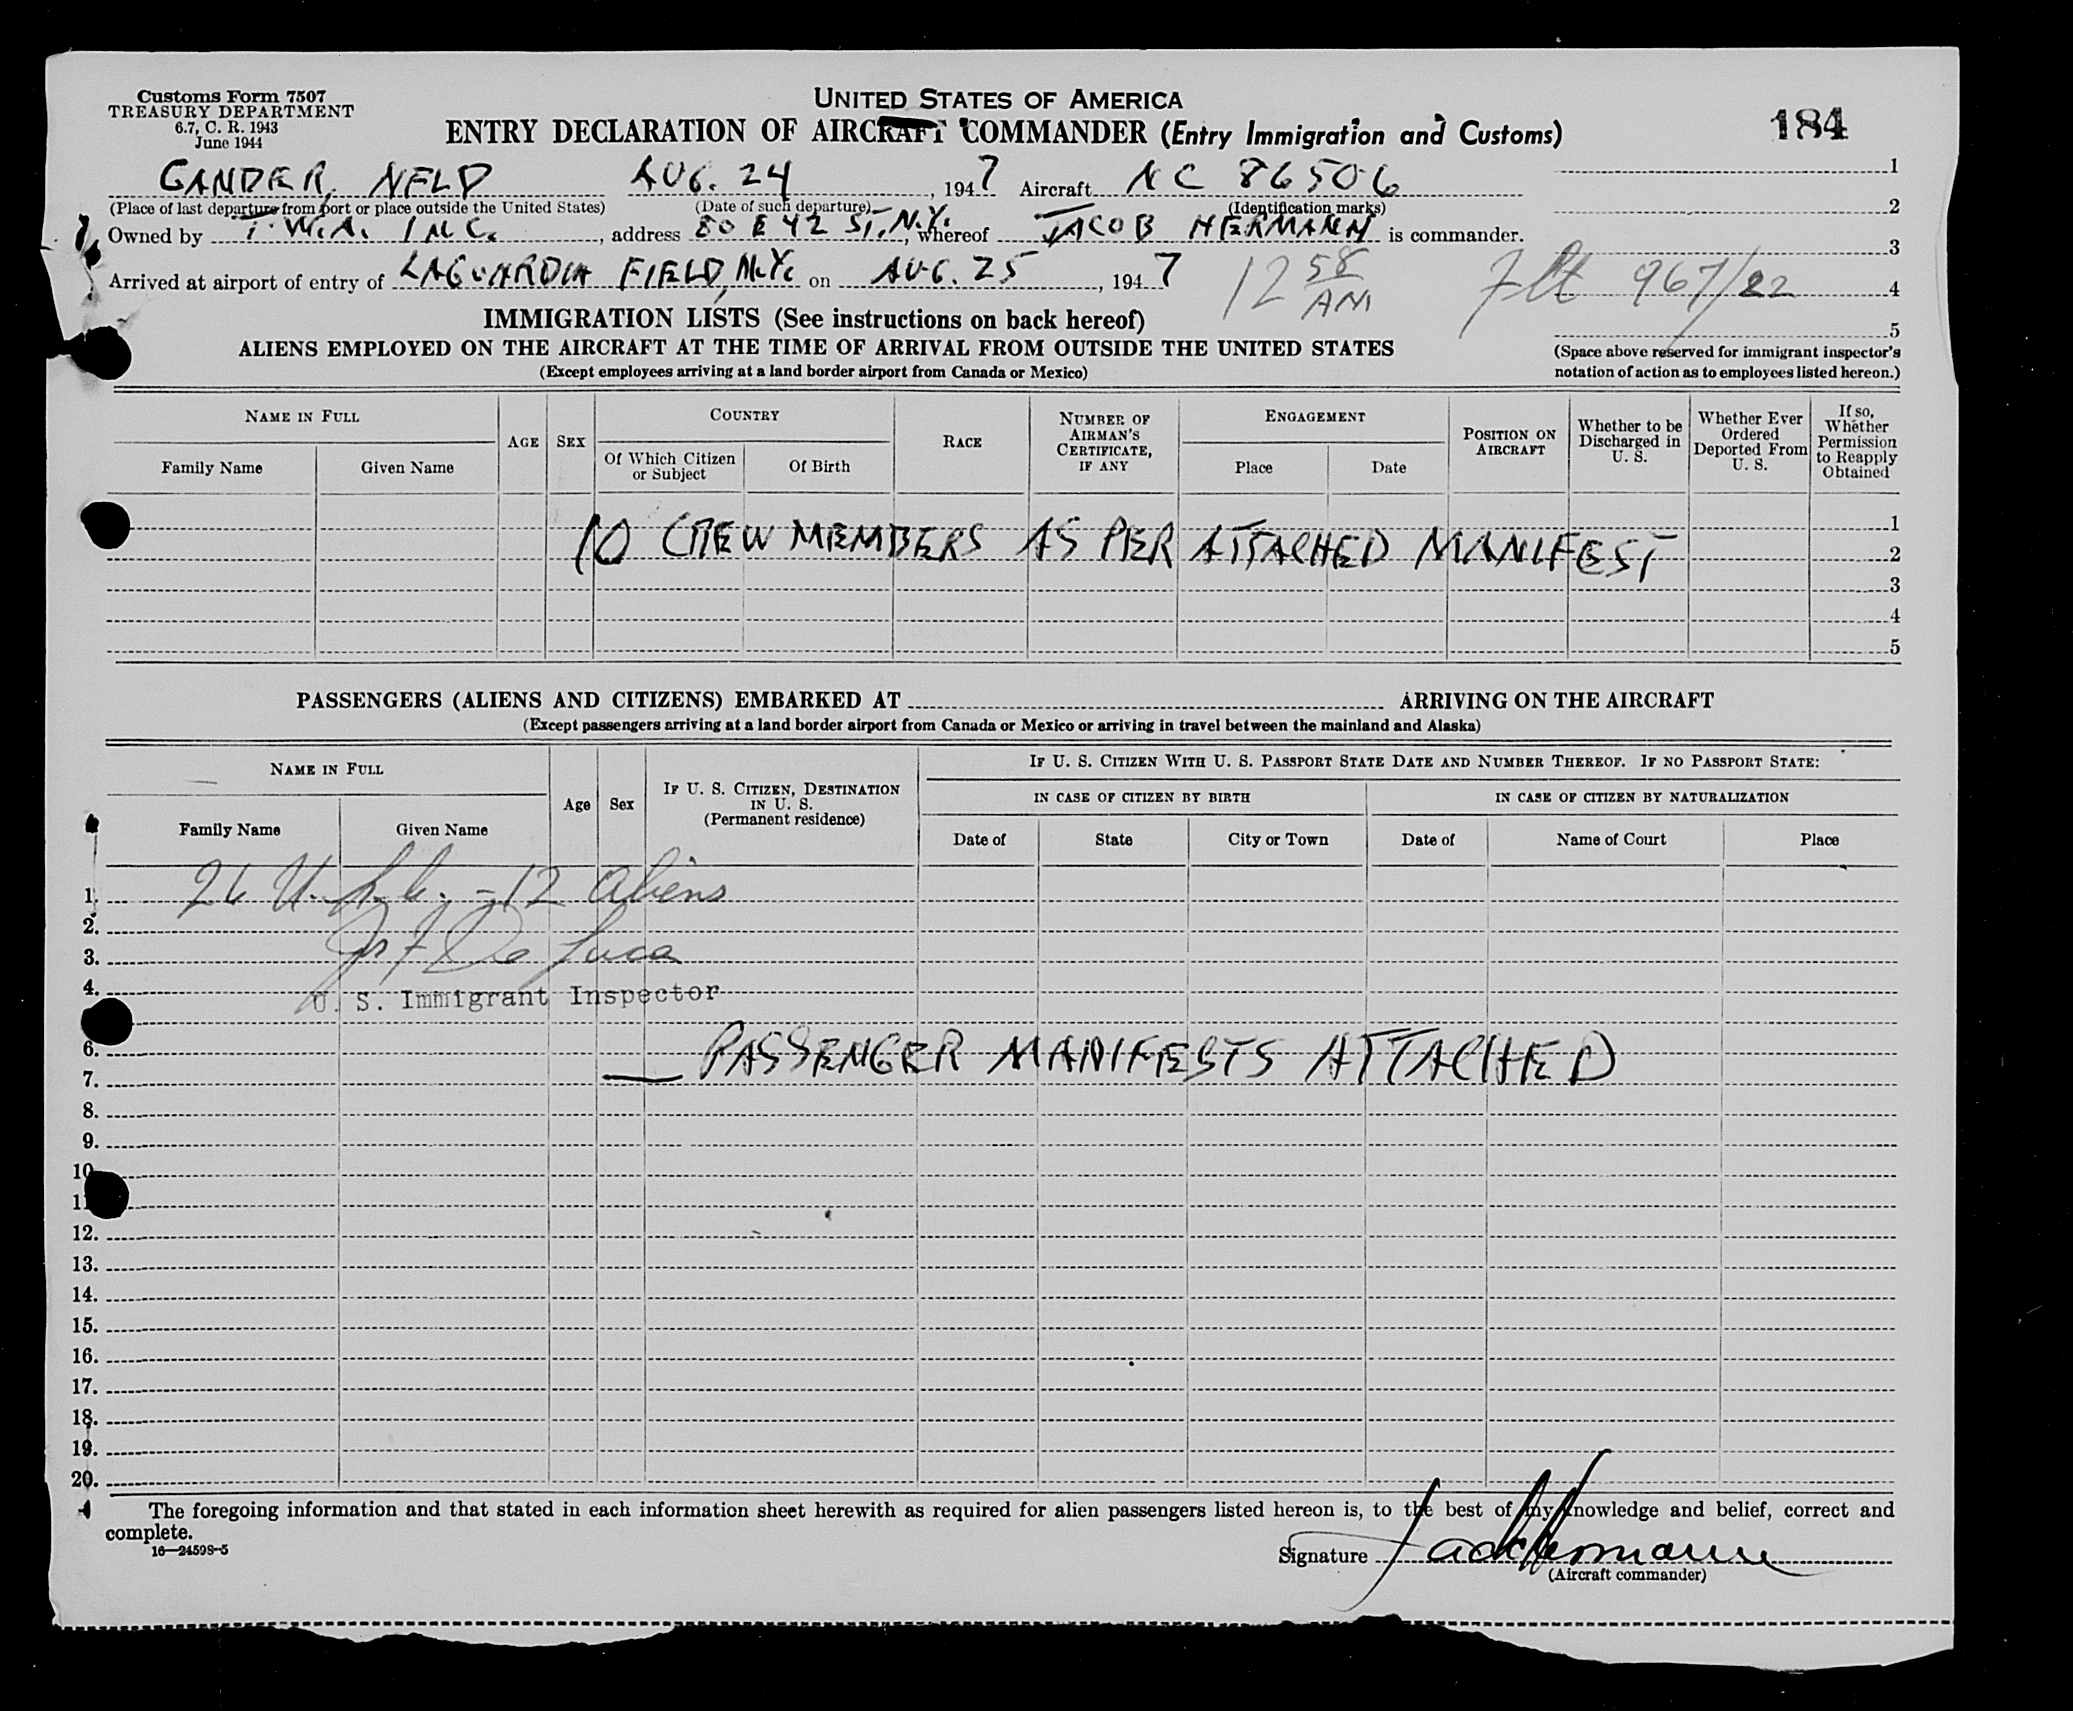 Customs Form 7507
TREASURY DEPARTMENT
6.7, C. R. 1943
June 1944
UNITED STATES OF AMERICA
ENTRY DECLARATION OF AIRCRAFT COMMANDER (Entry Immigration and Customs)
184
GANDER, NFLD AUG. 24, 1947 Aircraft NC 86506
(Place of last departure from port or place outside the United States) (Date of such departure) (Identification marks)
Owned by T.W.A. INC., address 80 E 42 ST. N.Y., whereof JACOB HERMANN is commander.
Arrived at airport of entry of LAGUARDIA FIELD, N.Y. on AUG. 25, 1947
12 58 AM
Flt 967/22
1
2
3
4
5
(Space above reserved for immigrant inspector's
notation of action as to employees listed hereon.)
IMMIGRATION LISTS (See instructions on back hereof)
ALIENS EMPLOYED ON THE AIRCRAFT AT THE TIME OF ARRIVAL FROM OUTSIDE THE UNITED STATES
(Except employees arriving at a land border airport from Canada or Mexico)
NAME IN FULL
Family Name Given Name
AGE SEX
COUNTRY
Of Which Citizen or Subject Of Birth
RACE
NUMBER OF AIRMAN'S CERTIFICATE, IF ANY
ENGAGEMENT
Place Date
POSITION ON AIRCRAFT
Whether to be Discharged in U. S.
Whether Ever Ordered Deported From U. S.
If so, Whether Permission to Reapply Obtained
1
10 CREW MEMBERS AS PER ATTACHED MANIFEST 2
3
4
5
PASSENGERS (ALIENS AND CITIZENS) EMBARKED AT ARRIVING ON THE AIRCRAFT
(Except passengers arriving at a land border airport from Canada or Mexico or arriving in travel between the mainland and Alaska)
NAME IN FULL
Family Name Given Name
Age Sex
IF U. S. CITIZEN, DESTINATION IN U. S. (Permanent residence)
IF U. S. CITIZEN WITH U. S. PASSPORT STATE DATE AND NUMBER THEREOF. IF NO PASSPORT STATE:
IN CASE OF CITIZEN BY BIRTH IN CASE OF CITIZEN BY NATURALIZATION
Date of State City or Town Date of Name of Court Place
1. 26 U.S.C. - 12 Aliens
2.
3. Jos F De Luca
4. U. S. Immigrant Inspector
6. PASSENGER MANIFESTS ATTACHED
7.
8.
9.
10
11
12.
13.
14.
15.
16.
17.
18.
19.
20.
The foregoing information and that stated in each information sheet herewith as required for alien passengers listed hereon is, to the best of my knowledge and belief, correct and
complete.
16—24598-5
Signature Jack Hermann
(Aircraft commander)